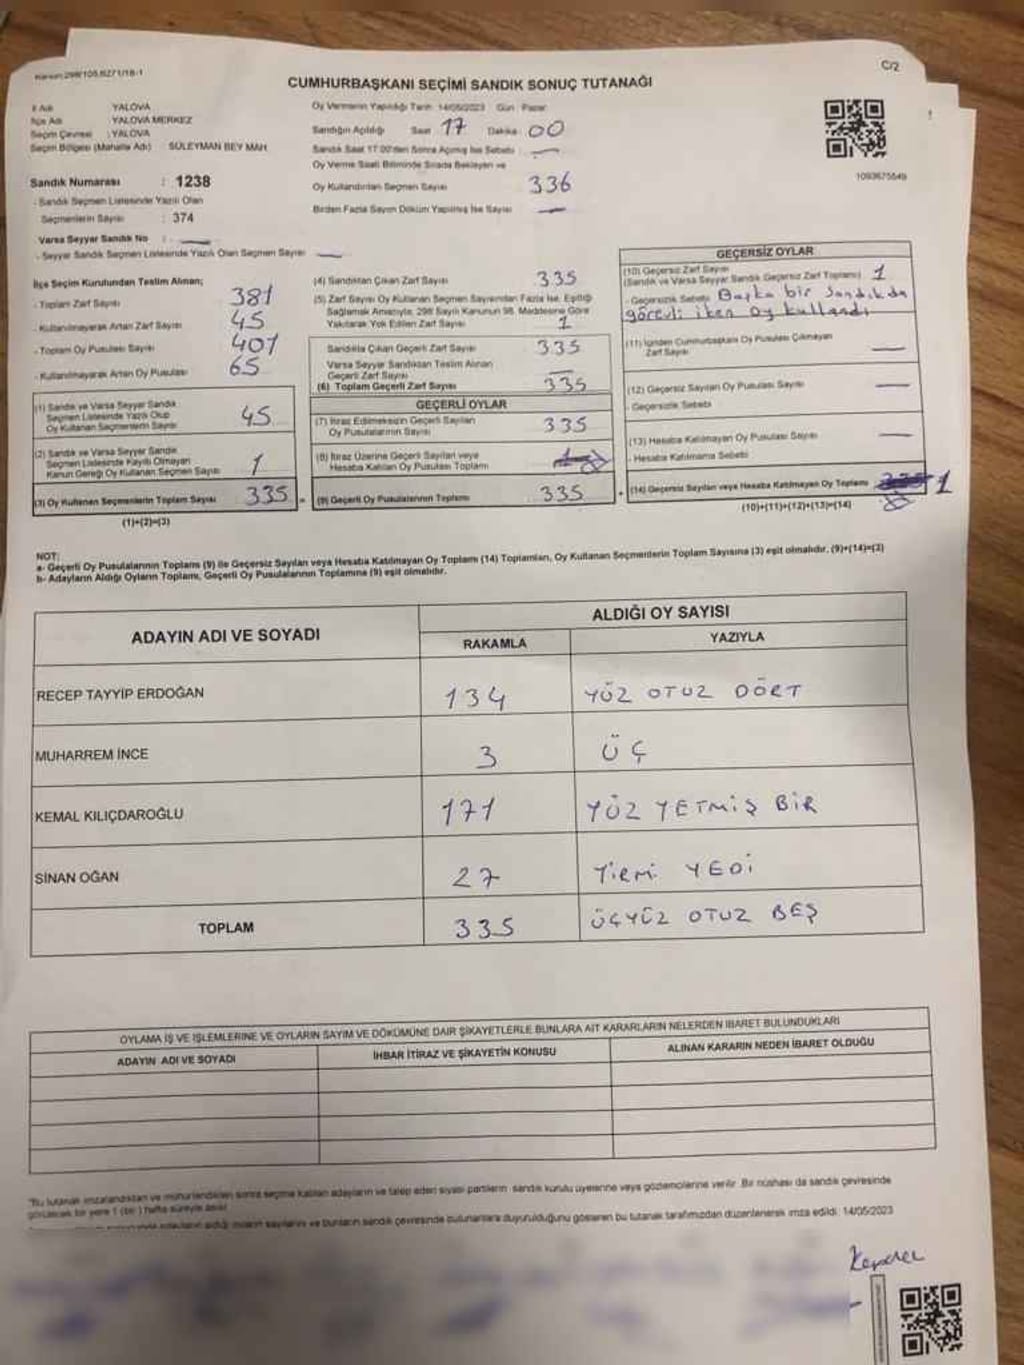 Kanun:298/105,6271/18-1
C/2
CUMHURBAŞKANI SEÇİMİ SANDIK SONUÇ TUTANAĞI
İl Adı YALOVA
İlçe Adı YALOVA MERKEZ
Seçim Çevresi : YALOVA
Seçim Bölgesi (Mahalle Adı) SÜLEYMAN BEY MAH.
Sandık Numarası : 1238
- Sandık Seçmen Listesinde Yazılı Olan
Seçmenlerin Sayısı : 374
Varsa Seyyar Sandık No : —
- Seyyar Sandık Seçmen Listesinde Yazılı Olan Seçmen Sayısı —
Oy Vermenin Yapıldığı Tarih 14/05/2023 Gün Pazar
Sandığın Açıldığı Saat 17 Dakika 00
Sandık Saat 17.00'den Sonra Açılmış İse Sebebi : —
Oy Verme Saati Bitiminde Sırada Bekleyen ve
Oy Kullandırılan Seçmen Sayısı 336
Birden Fazla Sayım Döküm Yapılmış İse Sayısı —
1093675549
İlçe Seçim Kurulundan Teslim Alınan;
- Toplam Zarf Sayısı 381
- Kullanılmayarak Artan Zarf Sayısı 45
- Toplam Oy Pusulası Sayısı 401
- Kullanılmayarak Artan Oy Pusulası 65
(1) Sandık ve Varsa Seyyar Sandık
Seçmen Listesinde Yazılı Olup
Oy Kullanan Seçmenlerin Sayısı 45
(2) Sandık ve Varsa Seyyar Sandık
Seçmen Listesinde Kayıtlı Olmayan
Kanun Gereği Oy Kullanan Seçmen Sayısı 1
(3) Oy Kullanan Seçmenlerin Toplam Sayısı 335
(1)+(2)=(3)
(4) Sandıktan Çıkan Zarf Sayısı 335
(5) Zarf Sayısı Oy Kullanan Seçmen Sayısından Fazla İse, Eşitliği
Sağlamak Amacıyla, 298 Sayılı Kanunun 98. Maddesine Göre
Yakılarak Yok Edilen Zarf Sayısı 1
Sandıkta Çıkan Geçerli Zarf Sayısı 335
Varsa Seyyar Sandıktan Teslim Alınan
Geçerli Zarf Sayısı —
(6) Toplam Geçerli Zarf Sayısı 335
GEÇERLİ OYLAR
(7) İtiraz Edilmeksizin Geçerli Sayılan
Oy Pusulalarının Sayısı 335
(8) İtiraz Üzerine Geçerli Sayılan veya
Hesaba Katılan Oy Pusulası Toplamı
(9) Geçerli Oy Pusulalarının Toplamı 335
GEÇERSİZ OYLAR
(10) Geçersiz Zarf Sayısı
(Sandık ve Varsa Seyyar Sandık Geçersiz Zarf Toplamı) 1
- Geçersizlik Sebebi Başka bir Sandıkda
görevli iken oy kullandı
(11) İçinden Cumhurbaşkanı Oy Pusulası Çıkmayan
Zarf Sayısı —
(12) Geçersiz Sayılan Oy Pusulası Sayısı —
- Geçersizlik Sebebi
(13) Hesaba Katılmayan Oy Pusulası Sayısı —
- Hesaba Katılmama Sebebi
(14) Geçersiz Sayılan veya Hesaba Katılmayan Oy Toplamı 1
(10)+(11)+(12)+(13)=(14)
NOT:
a- Geçerli Oy Pusulalarının Toplamı (9) ile Geçersiz Sayılan veya Hesaba Katılmayan Oy Toplamı (14) Toplamları, Oy Kullanan Seçmenlerin Toplam Sayısına (3) eşit olmalıdır. (9)+(14)=(3)
b- Adayların Aldığı Oyların Toplamı, Geçerli Oy Pusulalarının Toplamına (9) eşit olmalıdır.
ADAYIN ADI VE SOYADI
ALDIĞI OY SAYISI
RAKAMLA YAZIYLA
RECEP TAYYİP ERDOĞAN 134 YÜZ OTUZ DÖRT
MUHARREM İNCE 3 ÜÇ
KEMAL KILIÇDAROĞLU 171 YÜZ YETMİŞ BİR
SİNAN OĞAN 27 YİRMİ YEDİ
TOPLAM 335 ÜÇYÜZ OTUZ BEŞ
OYLAMA İŞ VE İŞLEMLERİNE VE OYLARIN SAYIM VE DÖKÜMÜNE DAİR ŞİKAYETLERLE BUNLARA AİT KARARLARIN NELERDEN İBARET BULUNDUKLARI
ADAYIN ADI VE SOYADI İHBAR İTİRAZ VE ŞİKAYETİN KONUSU ALINAN KARARIN NEDEN İBARET OLDUĞU
*Bu tutanak imzalandıktan ve mühürlendikten sonra seçime katılan adayların ve talep eden siyasi partilerin sandık kurulu üyelerine veya gözlemcilerine verilir. Bir nüshası da sandık çevresinde
görülecek bir yere 1 (bir) hafta süreyle asılır.
aldığı oyların sayılarını ve bunların sandık çevresinde bulunanlara duyurulduğunu gösteren bu tutanak tarafımızdan düzenlenerek imza edildi. 14/05/2023